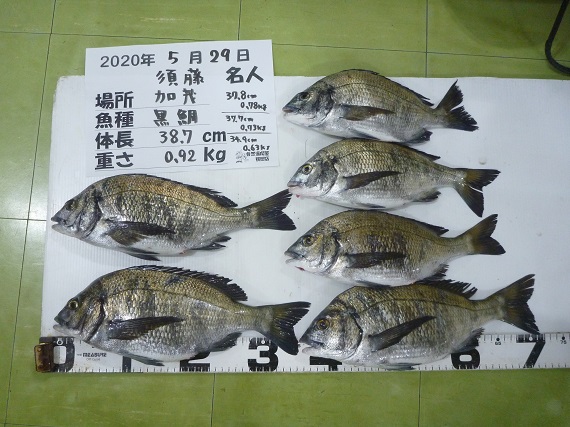 2020年 5月29日
須藤 名人
場所 加茂 37.8cm
0.78kg
魚種 黒鯛 37.7cm
0.73kg
体長 38.7 cm 34.9cm
重さ 0.92 kg 0.63kg
0 1 2 3 4 5 6 7
MEASURE